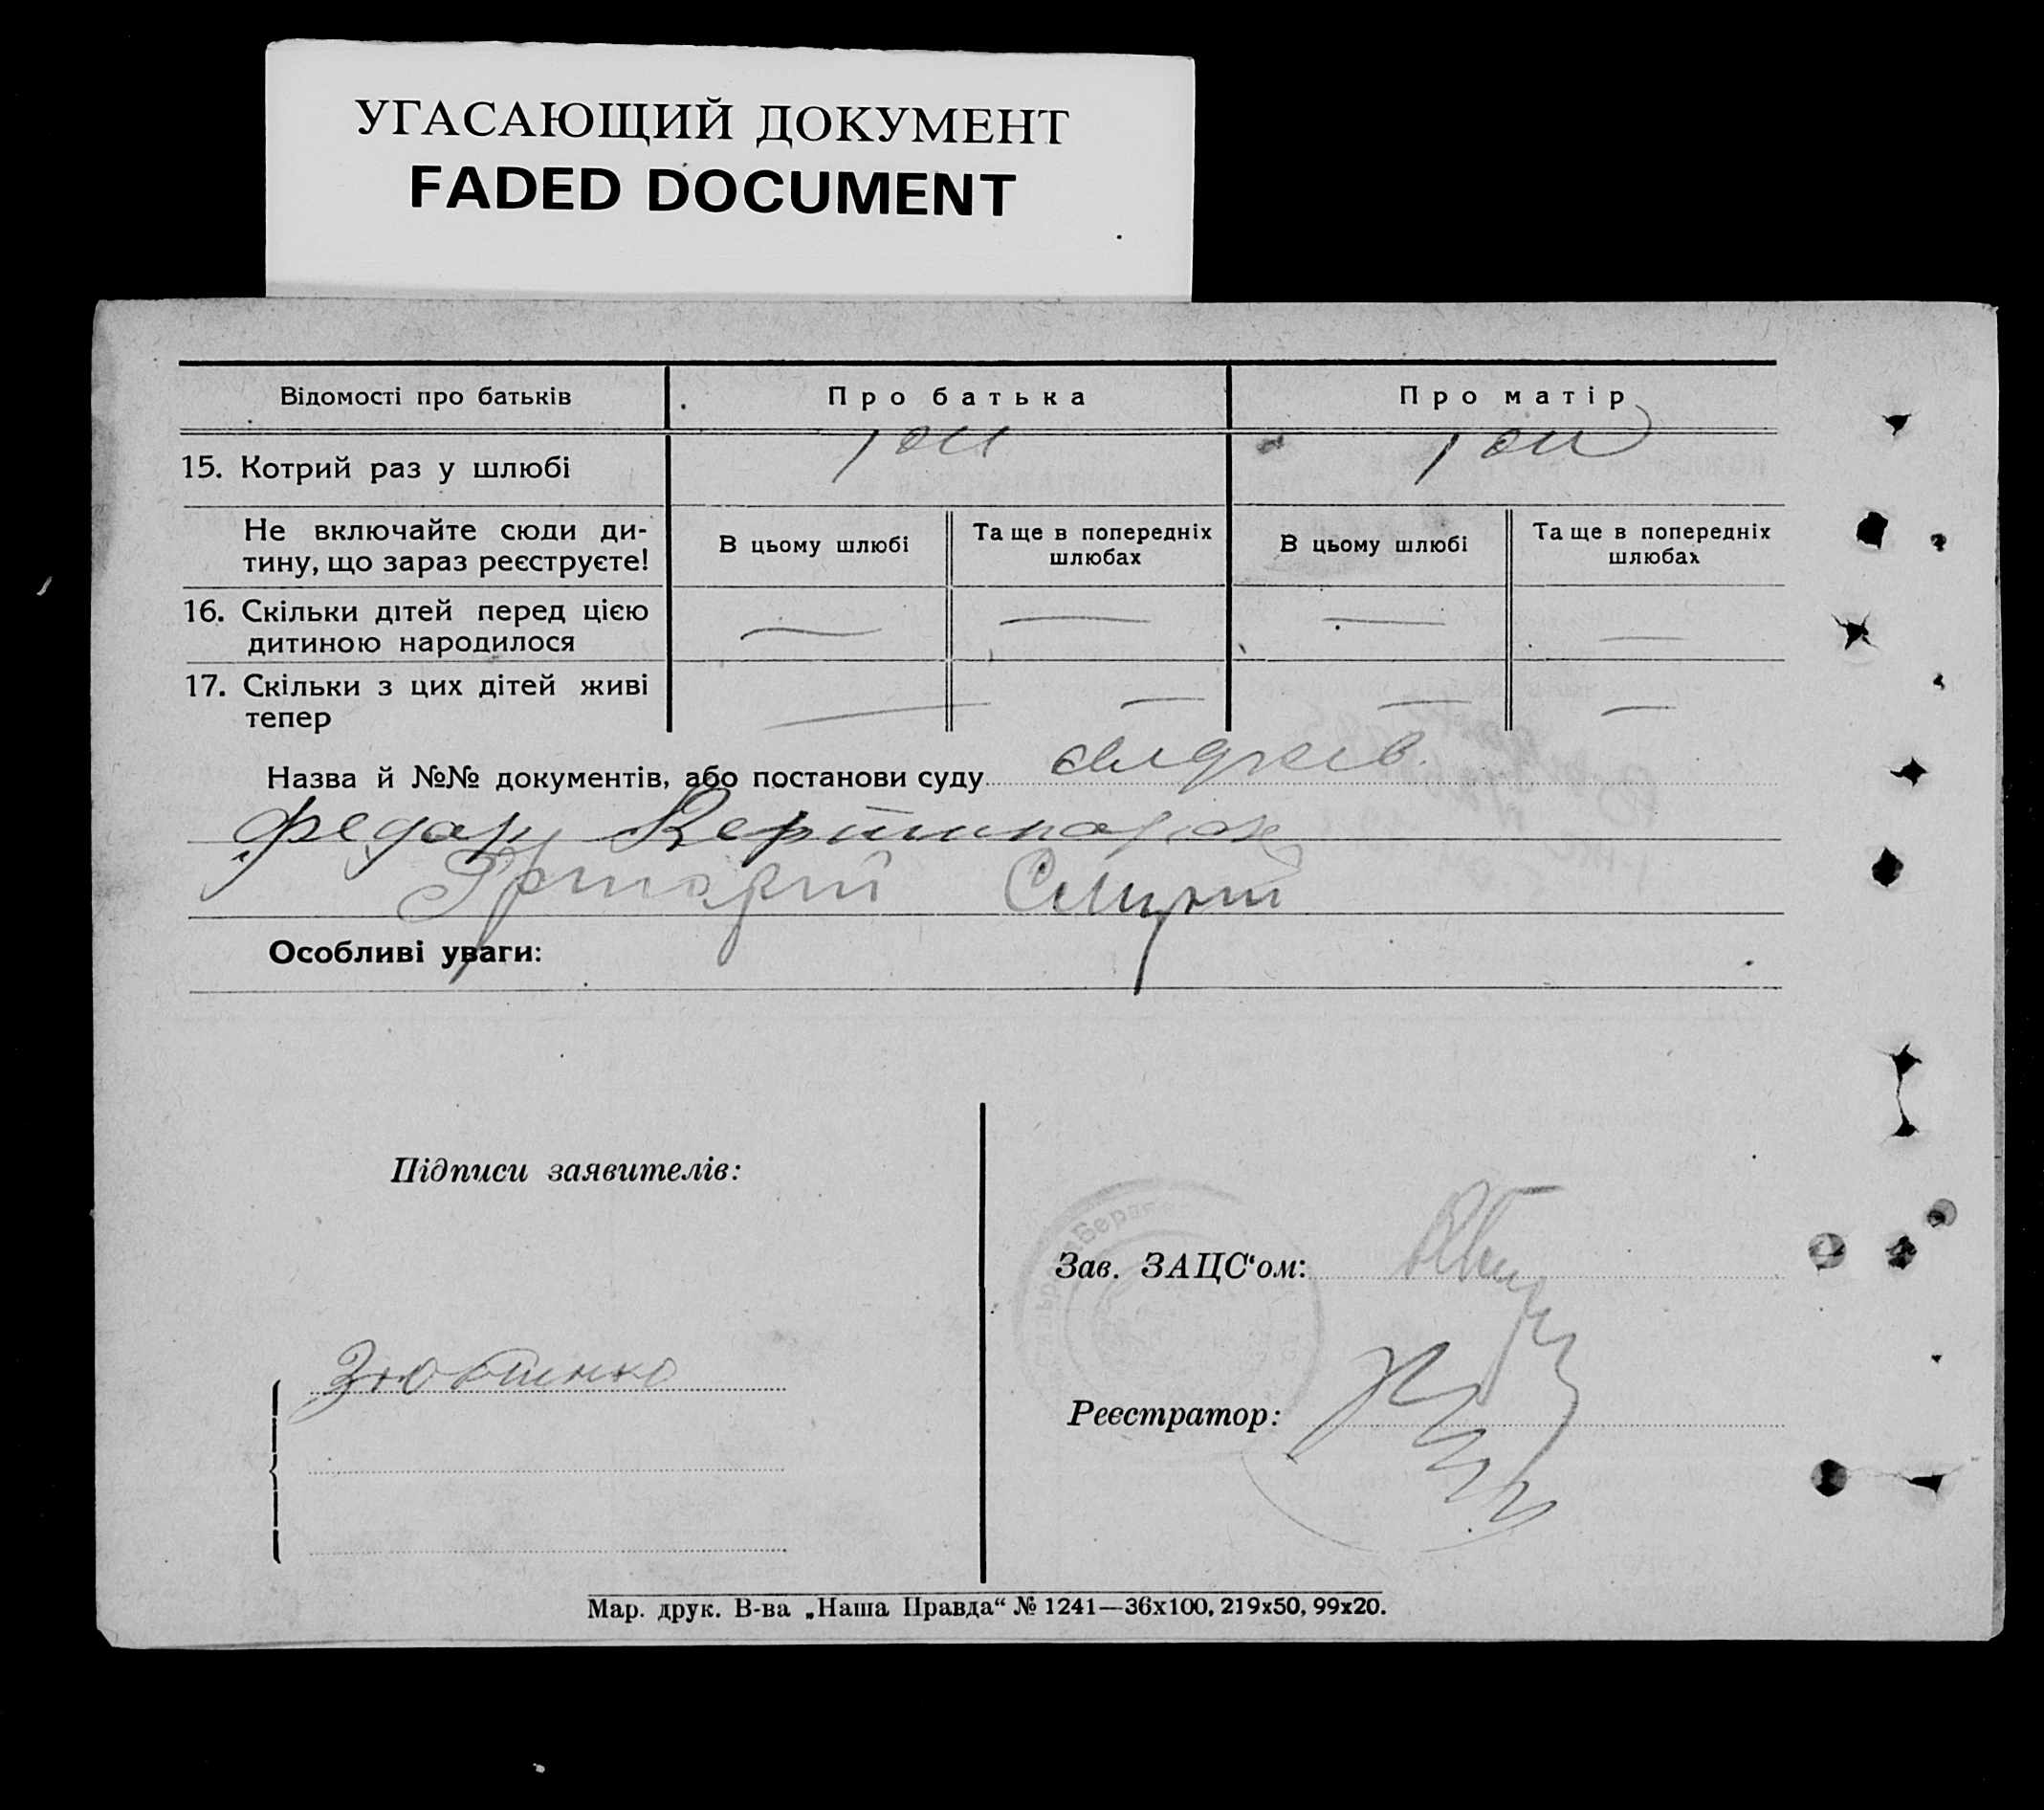 УГАСАЮЩИЙ ДОКУМЕНТ
FADED DOCUMENT
Відомості про батьків
Про батька
Про матір
15. Котрий раз у шлюбі
1ой
1ой
Не включайте сюди ди-
тину, що зараз реєструєте!
В цьому шлюбі
Та ще в попередніх
шлюбах
В цьому шлюбі
Та ще в попередніх
шлюбах
16. Скільки дітей перед цією
дитиною народилося
— — — —
17. Скільки з цих дітей живі
тепер
— — — —
Назва й №№ документів, або постанови суду
Федор
Григорий
Особливі уваги:
Підписи заявителів:
Зав. ЗАЦС‘ом:
Реєстратор:
Мар. друк. В-ва „Наша Правда“ № 1241—36х100, 219х50, 99х20.